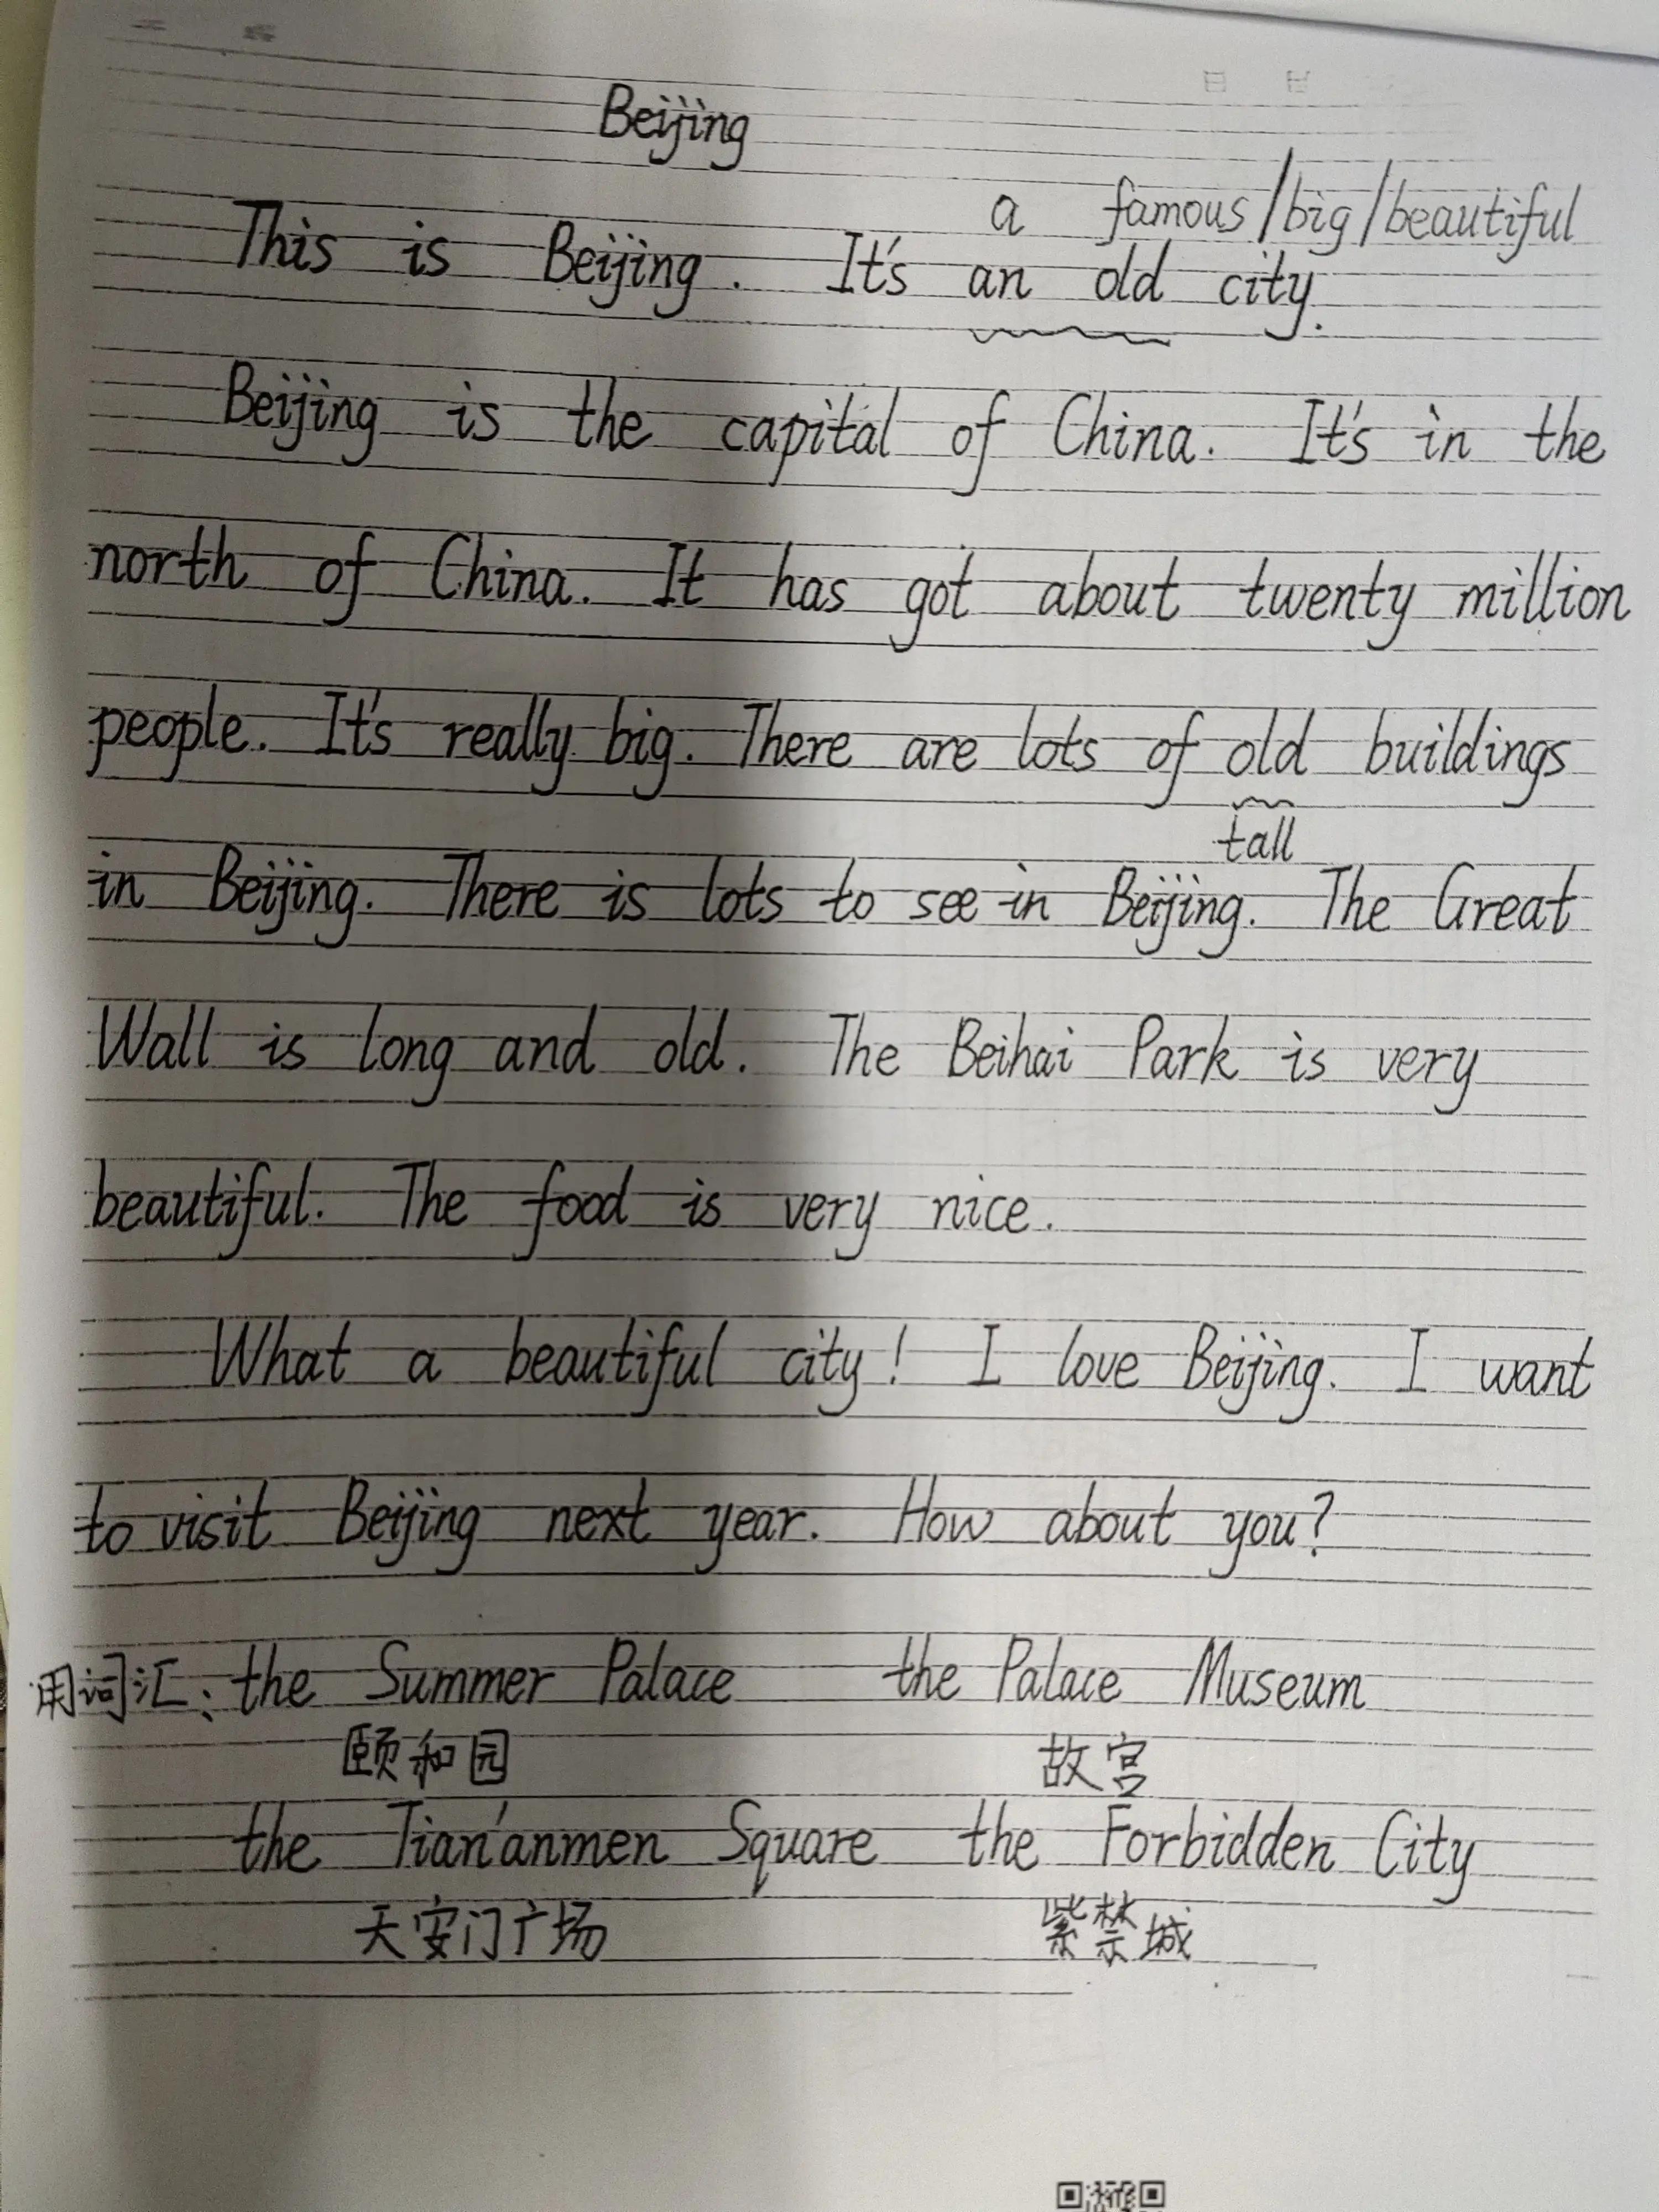 Beijing
a famous/big/beautiful
This is Beijing. It's an old city.
Beijing is the capital of China. It's in the
north of China. It has got about twenty million
people. It's really big. There are lots of old buildings
tall
in Beijing. There is lots to see in Beijing. The Great
Wall is long and old. The Beihai Park is very
beautiful. The food is very nice.
What a beautiful city! I love Beijing. I want
to visit Beijing next year. How about you?
用词汇: the Summer Palace the Palace Museum
颐和园 故宫
the Tian'anmen Square the Forbidden City
天安门广场 紫禁城